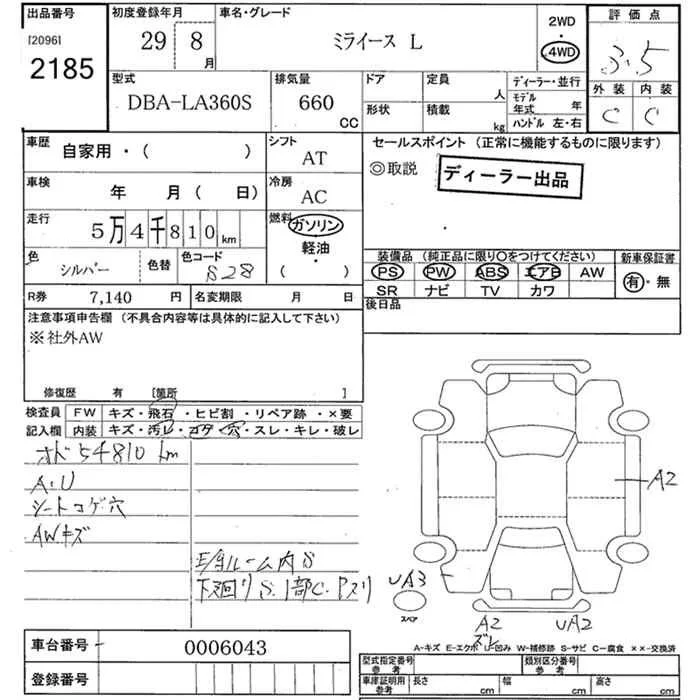 出品番号
[2096]
2185
初度登録年月
29 8
月
車名・グレード
ミライース L
2WD
・
4WD
評価点
3.5
外装 内装
C C
型式
DBA-LA360S
排気量
660
CC
ドア
形状
定員
人
積載
kg
ディーラー・並行
モデル
年式 年
ハンドル 左・右
車歴 自家用・( )
シフト
AT
セールスポイント (正常に機能するものに限ります)
◎取説
ディーラー出品
車検 年 月( 日)
冷房
AC
走行
5万4千810km
燃料
ガソリン
・
軽油
・
( )
色
シルバー
色替
色コード
S28
装備品 (純正品に限り○をつけてください)
PS PW ABS エアB AW
SR ナビ TV カワ
新車保証書
有・無
R券 7,140 円
名変期限 月 日
後日品
注意事項申告欄 (不具合内容等は具体的に記入して下さい)
※社外AW
修復歴 有 [箇所 ]
検査員
記入欄
FW キズ・飛石・ヒビ割・リペア跡・×要
内装 キズ・汚レ・コゲ・穴・スレ・キレ・破レ
オド54810km
A・U
シートコゲ穴
AWキズ
E/gルーム内S
下廻りS.1部C.Pヌリ
A2
UA3
スペア
A2
ズレ
UA2
A-キズ E-エクボ U-凹み W-補修跡 S-サビ C-腐食 ××-交換済
車台番号 0006043
登録番号
型式指定番号
参考
類別区分番号
参考
車庫証明用
参考
長さ cm
幅 cm
高さ cm